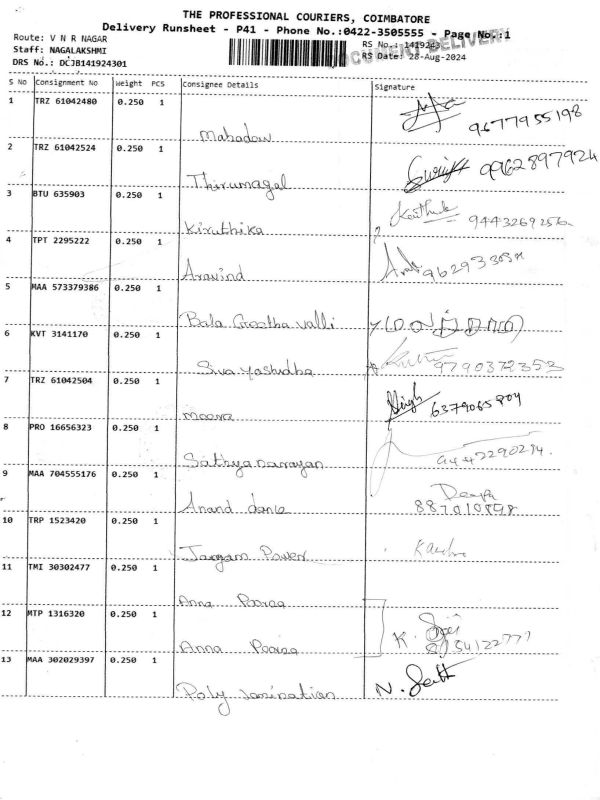 THE PROFESSIONAL COURIERS, COIMBATORE
Delivery Runsheet - P41 - Phone No.:0422-3505555 - Page No.:1
Route: V N R NAGAR
RS No.: 1419243
Staff: NAGALAKSHMI
RS Date: 28-Aug-2024
DRS No.: DCJB141924301
DOCUMENT DELIVERY
S No Consignment No Weight PCS Consignee Details Signature
1 TRZ 61042480 0.250 1
9677955198
2 TRZ 61042524 0.250 1
Thirumagal 9962897924
3 BTU 635903 0.250 1
Kiruthika 9443269256
4 TPT 2295222 0.250 1
Aravind
5 MAA 573379386 0.250 1
Bala valli
6 KVT 3141170 0.250 1
Siva yashodha 9790372353
7 TRZ 61042504 0.250 1
6379065804
8 PRO 16656323 0.250 1
Sathyanarayan
9 MAA 704555176 0.250 1
Anand
10 TRP 1523420 0.250 1
Power
11 TMI 30302477 0.250 1
Anna
12 MTP 1316320 0.250 1
Anna K.
13 MAA 302029397 0.250 1
Poly N.